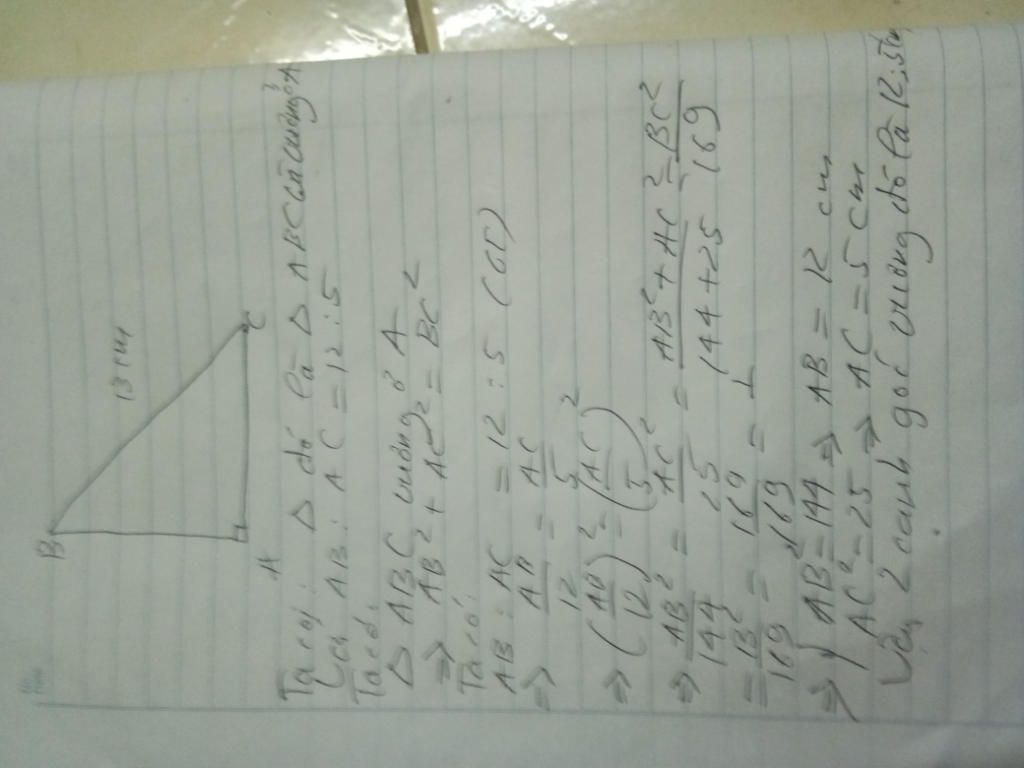 B
13 cm
A
C
Ta coi Δ đó là Δ ABC có cạnh vuông ở A
AB : AC = 12 : 5
Ta có:
Δ ABC vuông ở A
⇒ AB² + AC² = BC²
Ta có:
AB : AC = 12 : 5 (GT)
⇒ AB/12 = AC/5
⇒ (AB/12)² = (AC/5)²
⇒ AB²/144 = AC²/25 = (AB² + AC²)/(144 + 25) = BC²/169
= 13²/169 = 169/169 = 1
⇒ AB² = 144 ⇒ AB = 12 cm
AC² = 25 ⇒ AC = 5 cm
Vậy 2 cạnh góc vuông đó là 12, 5